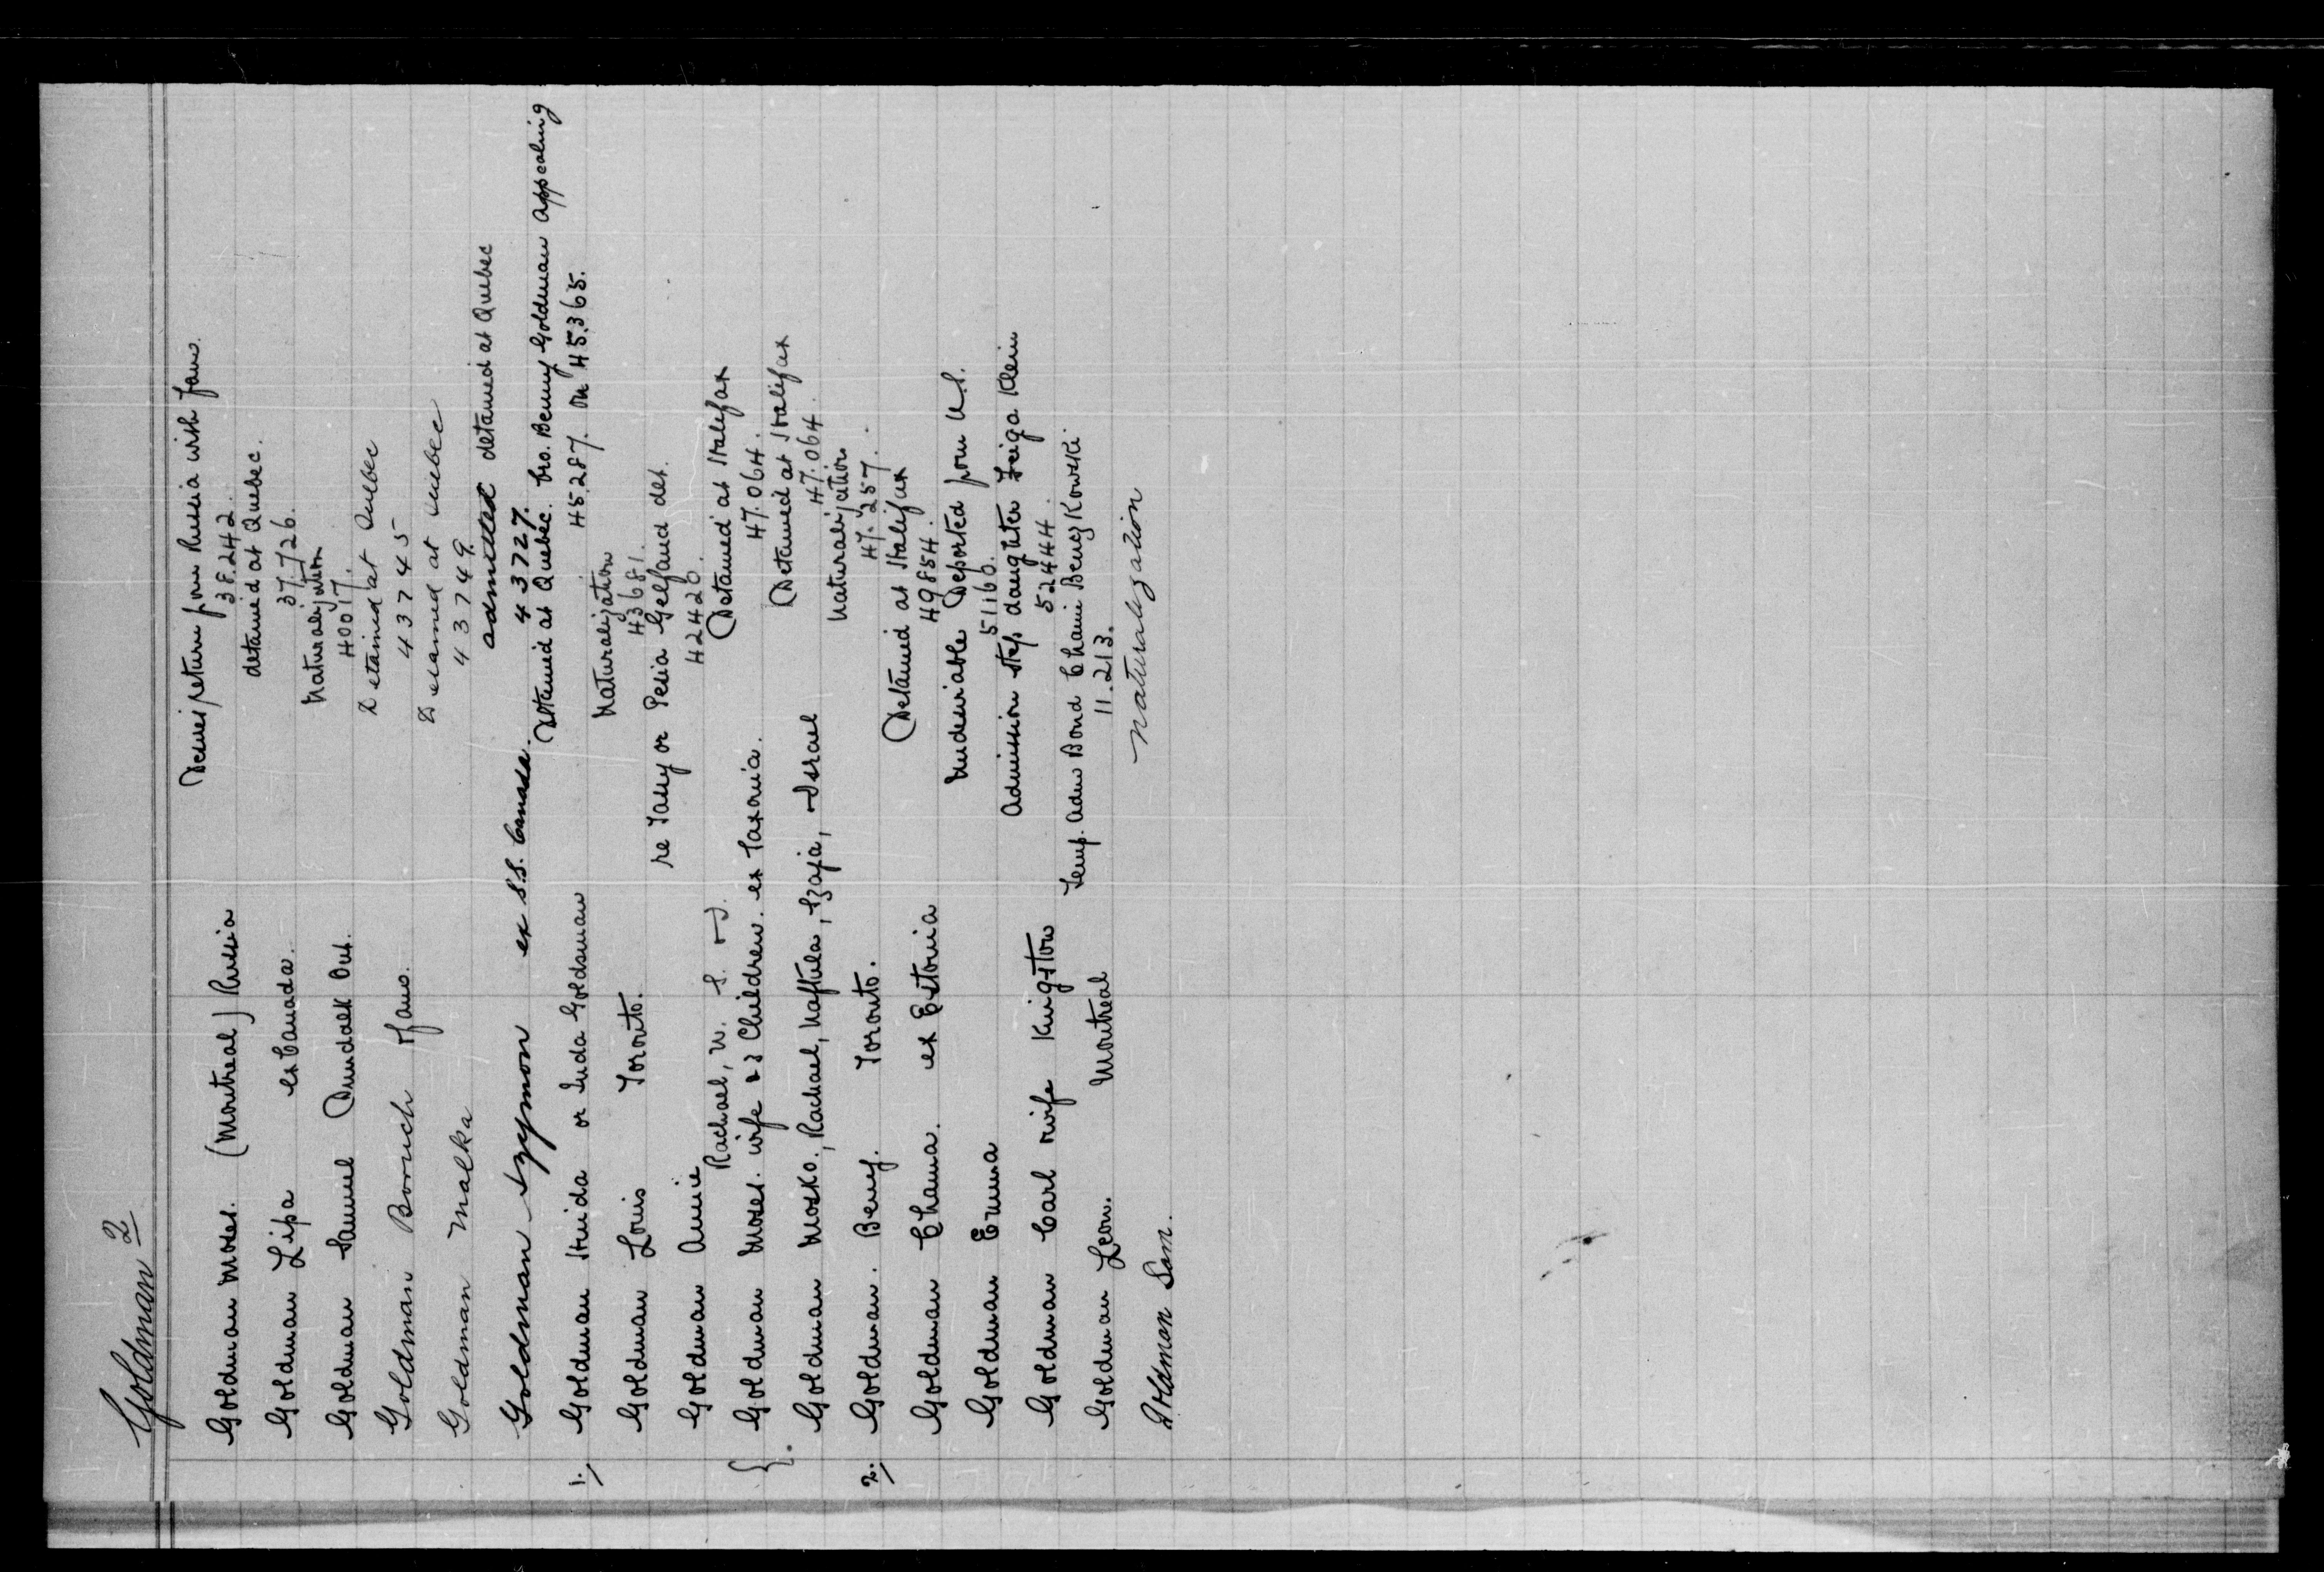 Goldman 2
Goldman Moses. (Montreal) Russia Desires return from Russia with fam.
38.242.
Goldman Lipa ex Canada. detained at Quebec.
37.726.
Goldman Samuel Dundalk Ont. Naturalization
40017.
Goldman Boruch & fam. Detained at Quebec
43745
Goldman Malka Detained at Quebec
43749.
Goldman Szymon ex S.S. Canada. admitted detained at Quebec
43727.
1. Goldman Hnida or Guda Goldsman Detained at Quebec. bro. Benny Goldman appealing
45.287. on 45.365.
Goldman Louis Toronto. Naturalization
43681.
Goldman Annie re Tany or Pesia Gelfand det.
42420.
Rachael, N. S. & I.
{ Goldman Moses. wife & 3 Children. ex Saxonia. Detained at Halifax
47.064.
Goldman Mosko, Rachael, Naftula, Szaja, & Israel Detained at Halifax
47.064.
2. Goldman. Benj. Toronto. Naturalization
47.257.
Goldman Chama. ex Estonia Detained at Halifax
49854.
Goldman Emma Undesirable Deported from U.S.
51160.
Goldman Carl wife Kingston Admission step daughter Feiga Klein
52444.
Goldman Leon. Montreal Temp. Adm Bond Chaim Benczkowski
11.213.
Goldman Sam. Naturalization